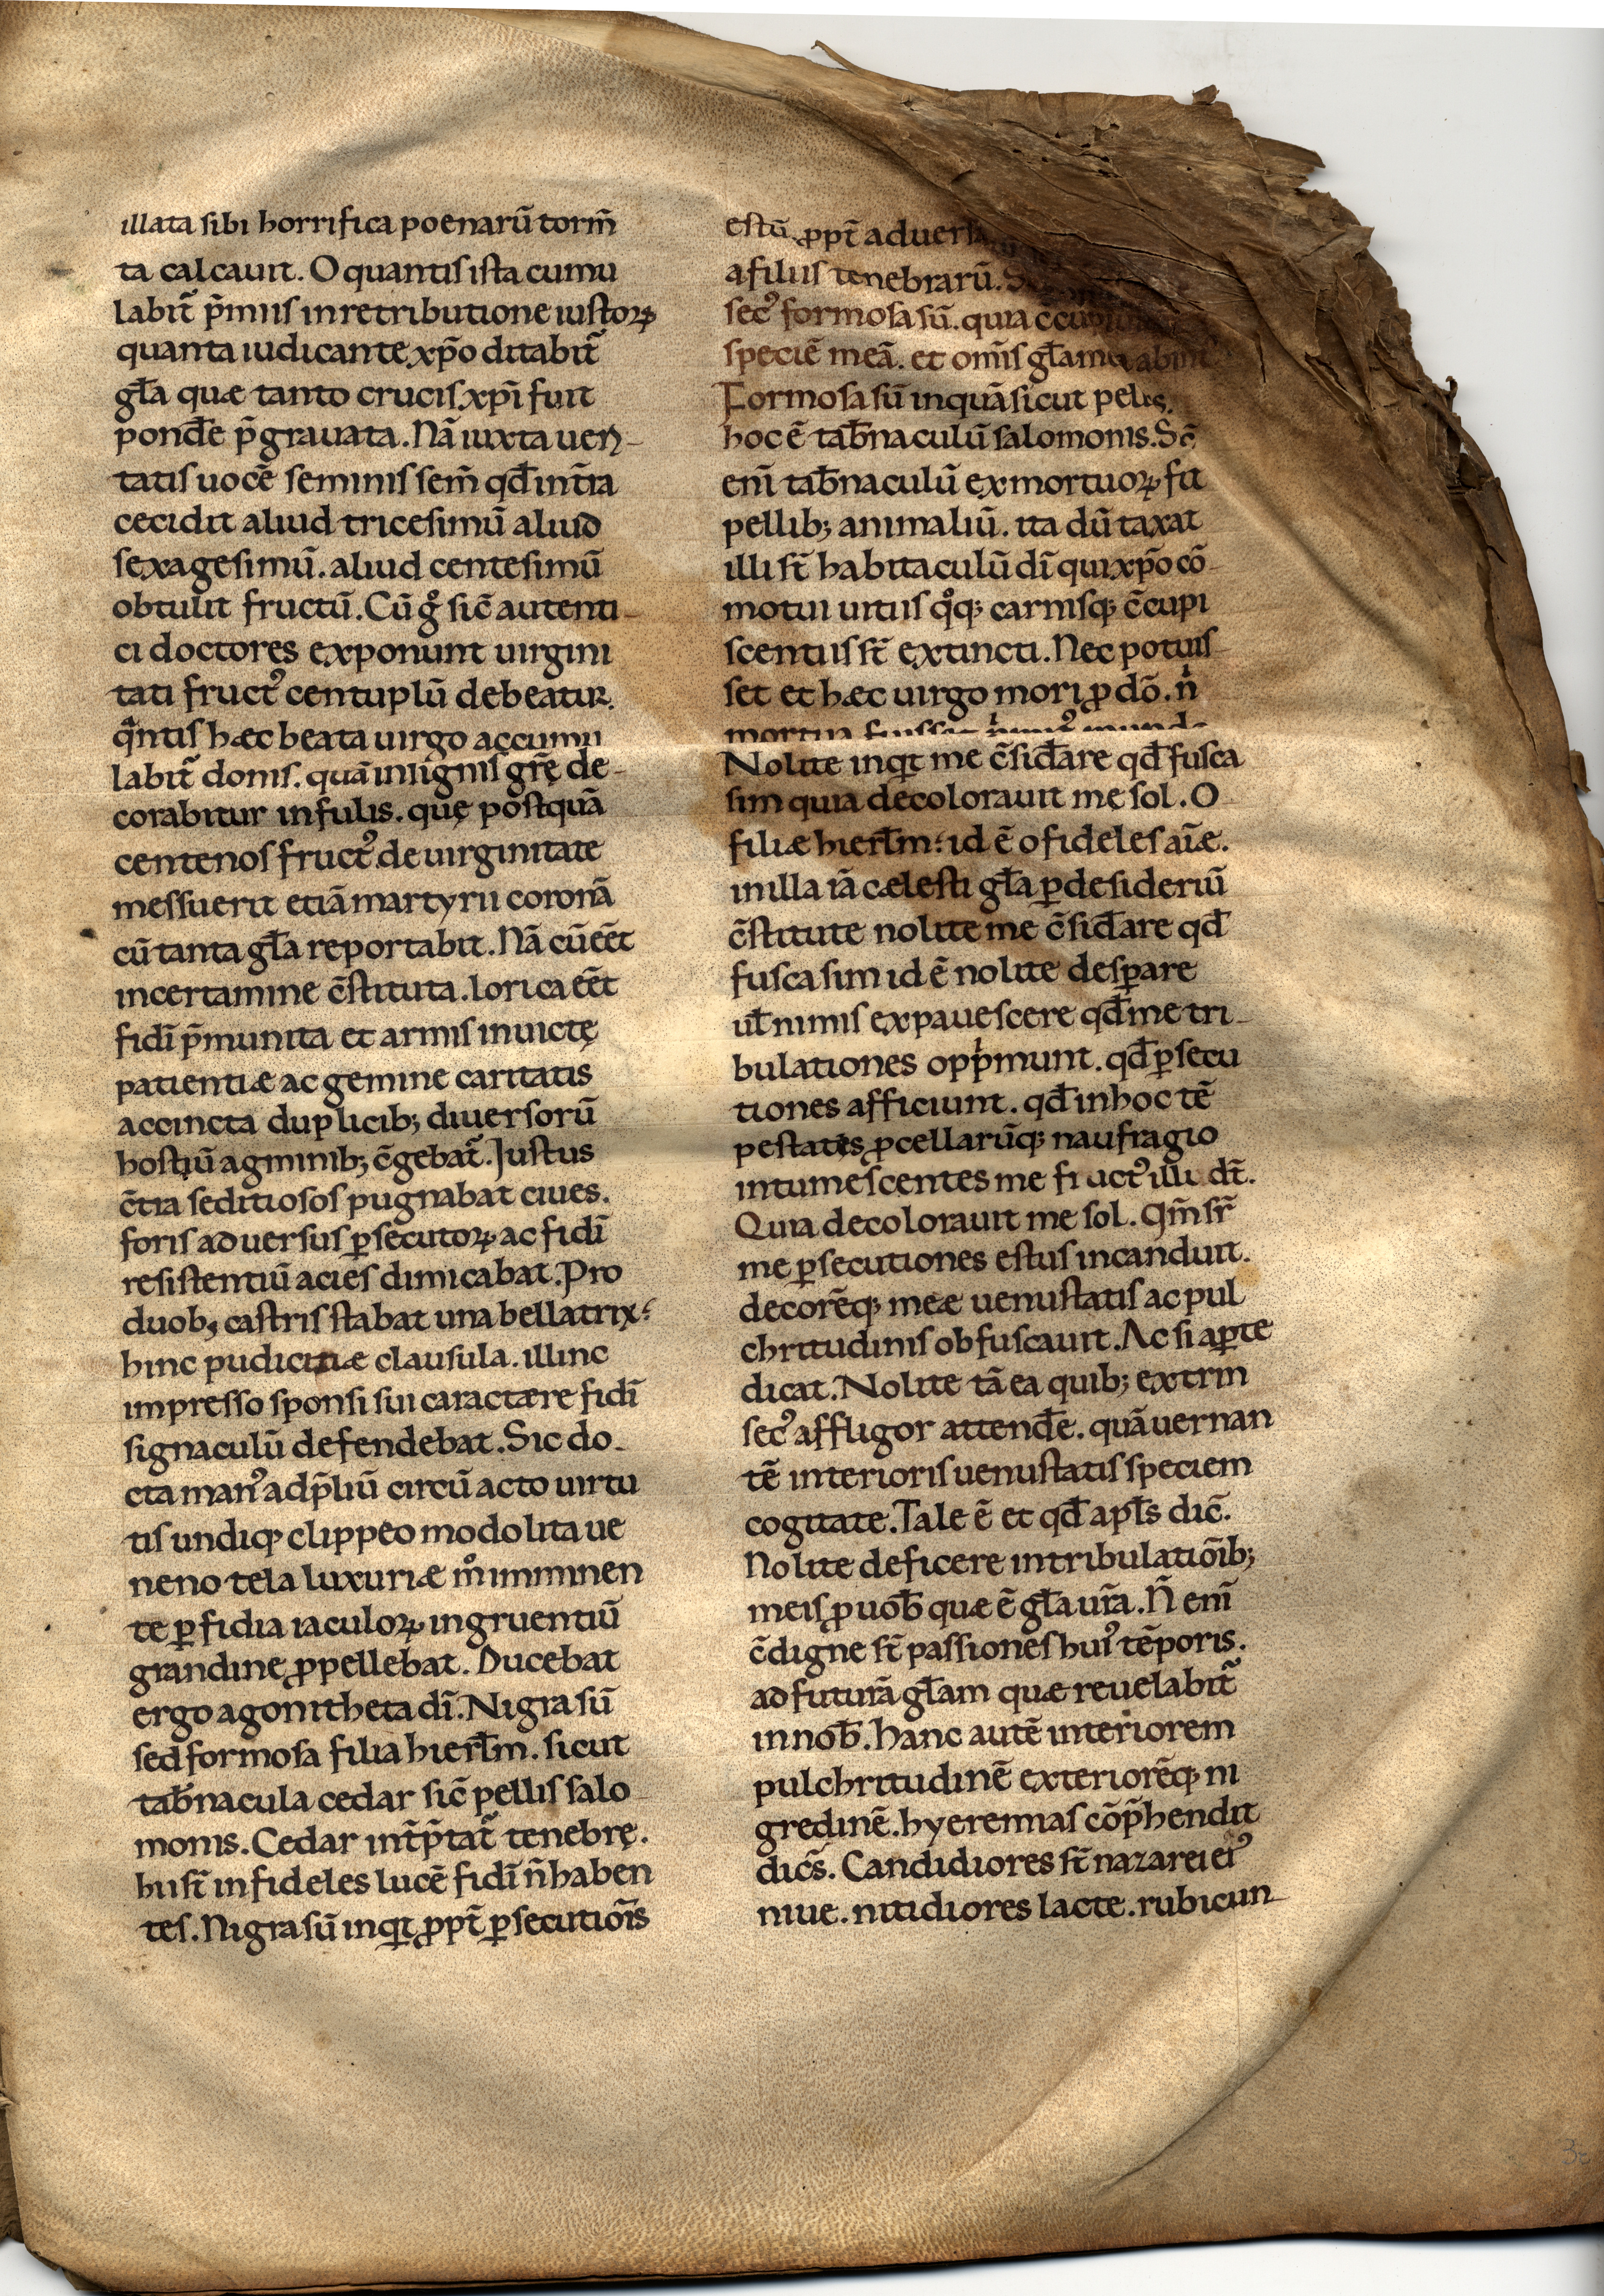 illata sibi horrifica poenarū torm̄
ta calcauit. O quantis ista cumu
labit̃ p̄miis inretributione iustoꝝ
quanta iudicante xp̄o ditabit̃
gl̄a quæ tanto crucis xp̄i fuit
pond̄e p̄grauata. Nā iuxta ueri-
tatis uocē seminis sem̄ qd̄ int̄ra
cecidit aliud tricesimū aliud
sexagesimū. aliud centesimū
obtulit fructū. Cū gͦ sic̄ autenti-
ci doctores exponunt uirgini
tati fruct᾽ centuplū debeatur.
qͣntis hæc beata uirgo accumu
labit̃ donis. quā insignis gr̄ę de-
corabitur infulis. quę postquā
centenos fruct᾽ de uirginitate
messuerit etiā martyrii coronā
cū tanta gl̄a reportabit. Nā cū eēt
incertamine c̄stituta. lorica eēt
fidī p̄munita et armis inuictę
patientiæ ac gemine caritatis
accincta duplicib; diuersorū
hostiū agminib; c̄gebat̃. Justus
c̄tra seditiosos pugnabat ciues.
foris aduersus ꝑsecutoꝝ ac fidī
resistentiū acies dimicabat. Pro
duob; castris stabat una bellatrix:
hinc pudicitiæ clausula. illinc
impresso sponsi sui caractære fidī
signaculū defendebat. Sic do-
cta man᾽ adp̄liū circū acto uirtu
tis undiq; clippeo modo lita ue
neno tela luxuriæ mͦ imminen
te ꝑfidia iaculoꝝ ingruentiū
grandine ꝓpellebat. Ducebat
ergo agonitheta dī. Nigra sū
sed formosa filia hierl̄m. sicut
tab̄nacula cedar sic̄ pellis salo
monis. Cedar int̄p̄tat̃ tenebrę.
hi st̄ infideles lucē fidī n̄ haben
tes. Nigra sū inqͥt ꝓpt̄ ꝑsecutiōis
estū. ꝓpt̄
afiliis tenebrarū.
sec᾽ formosa sū. quia
speciē meā. et om̄is gl̄a
Formosa sū inquā sicut
hoc ē tab̄naculū salomonis.
enī tab̄naculū exmortuoꝝ fit
pellib; animaliū. ita dū taxat
illi st̄ habitaculū dī qui xp̄o cō-
motui uitiis qͦq; carnisq; c̄cupi
scentiis st̄ extincti. Nec potuis-
set et hæc uirgo mori ꝓ dō. nͥ
Nolite inqͥt me c̄sid̄are qd̄ fusca
sim quia decolorauit me sol. O
filiæ hierl̄m: id ē o fideles aīæ.
inilla iā cælesti gl̄a ꝑ desideriū
c̄stitute nolite me c̄sid̄are qd̄
fusca sim id ē nolite desꝑare
ul̄ nimis expauescere qd̄ me tri-
bulationes oppͥmunt. qd̄ ꝑsecu
tiones afficiunt. qd̄ inhoc tē
pestatis ꝓcellarūq; naufragio
intumescentes me fluct᾽ illidt̄.
Quia decolorauit me sol. Qm̄ sr̄
me ꝑsecutiones estus incanduit.
decorēq; meæ uenustatis ac pul
chritudinis obfuscauit. Ac si aꝑte
dicat. Nolite tā ea quib; extrin
sec᾽ affligor attend̄e. quā uernan
tē interioris uenustatis speciem
cogitate. Tale ē et qd̄ apl̄s dic̄.
Nolite deficere intribulatiōib;
meis ꝓ uob̄ quæ ē gl̄a ur̄a. N̄ enī
c̄digne st̄ passiones hui᾽ tēporis.
ad futurā gl̄am quæ reuelabit̃
innob̄. hanc autē interiorem
pulchritudinē exteriorēq; ni
gredinē. hyeremias cōp̄hendit
dic̄s. Candidiores st̄ nazarei ei᾽
niue. nitidiores lacte. rubicun-